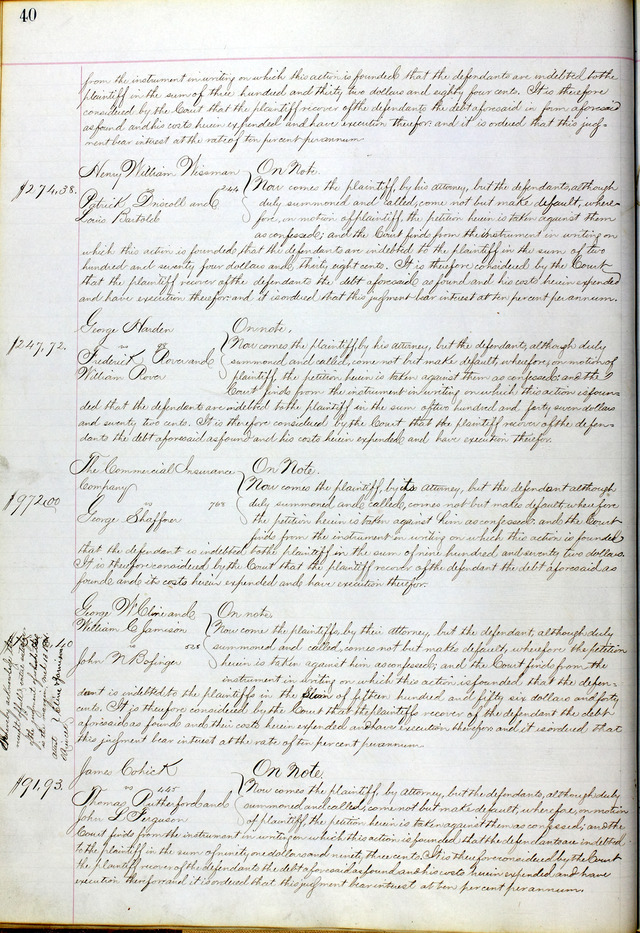 40
from the instrument in writing on which this action is founded that the defendants are indebted to the
plaintiff in the sum of three hundred and thirty two dollars and eighty four cents. It is therefore
considered by the Court that the plaintiff recover of the defendants the debt aforesaid in form aforesaid
as found and his costs herein expended and have execution therefor: and it is ordered that this judg-
ment bear interest at the rate of ten percent per annum.
Henry William Wissman On Note.
$274,38. vs 244 Now comes the plaintiff, by his attorney, but the defendants, although
Patrick Driscoll and duly summoned and called, come not but make default, where-
Louis Bartold fore, on motion of plaintiff, the petition herein is taken against them
as confessed; and the Court finds from the instrument in writing on
which this action is founded, that the defendants are indebted to the plaintiff in the sum of two
hundred and seventy four dollars and thirty eight cents. It is therefore considered by the Court
that the plaintiff recover of the defendants the debt aforesaid as found and his costs herein expended
and have execution therefor: and it is ordered that this judgment bear interest at ten percent per annum.
George Harden On note.
$247,72. vs Now comes the plaintiff by his attorney, but the defendants, although duly
Frederick Rova and summoned and called, come not but make default, wherefore, on motion of
William Rova plaintiff, the petition herein is taken against them as confessed: and the
Court finds from the instrument in writing on which this action is foun-
ded that the defendants are indebted to the plaintiff in the sum of two hundred and forty seven dollars
and seventy two cents. It is therefore considered by the Court that the plaintiff recover of the defen-
dants the debt aforesaid as found and his costs herein expended and have execution therefor.
The Commercial Insurance On Note.
Company Now comes the plaintiff, by its attorney, but the defendant although
$972,00 vs duly summoned and called, comes not but makes default, wherefore
George Shaffner the petition herein is taken against him as confessed: and the Court
finds from the instrument in writing on which this action is founded
that the defendant is indebted to the plaintiff in the sum of nine hundred and seventy two dollars.
It is therefore considered by the Court that the plaintiff recover of the defendant the debt aforesaid as
found and its costs herein expended and have execution therefor.
George W Cline and On note.
William C Jamison Now come the plaintiffs, by their attorney, but the defendant, although duly
vs 528 summoned and called, comes not but makes default, wherefore the petition
John N Bofinger herein is taken against him as confessed; and the Court finds from the
instrument in writing on which this action is founded that the defen-
dant is indebted to the plaintiffs in the sum of fifteen hundred and fifty six dollars and forty
cents. It is therefore considered by the Court that the plaintiffs recover of the defendant the debt
aforesaid as found and their costs herein expended and have execution therefor: and it is ordered that
this judgment bear interest at the rate of ten per cent per annum.
James Cohick On Note.
$91,93. vs 445 Now comes the plaintiff, by attorney, but the defendants, although duly
Thomas Rutherford and summoned and called, come not but make default, wherefore, on motion
John L Ferguson of plaintiff, the petition herein is taken against them as confessed; and the
Court finds from the instrument in writing on which this action is founded that the defendants are indebted
to the plaintiff in the sum of ninety one dollars and ninety three cents. It is therefore considered by the Court
the plaintiff recover of the defendants the debt aforesaid as found and his costs herein expended and have
execution therefor and it is ordered that this judgment bear interest at ten per cent per annum.